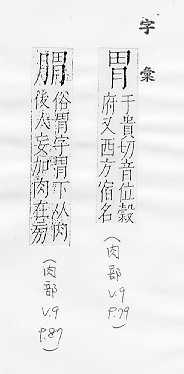 字彙
胃
于貴切音位穀
府又西方宿名
(肉部 V.9 P.79)
俗胃字胃下从肉
後人妄加肉在旁
(肉部 V.9 P.87)